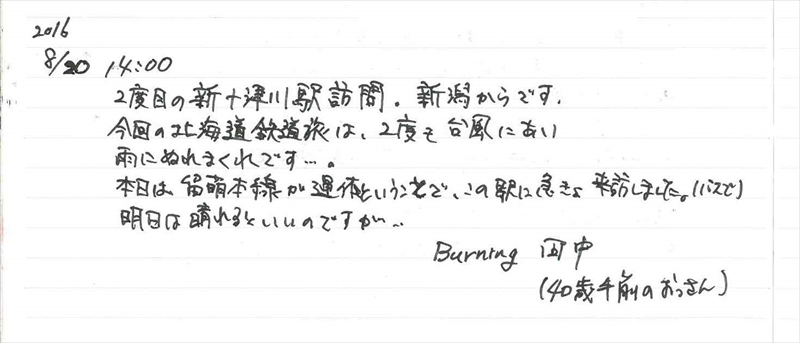 2016
8/20 14:00
2度目の新十津川駅訪問。新潟からです。
今回の北海道鉄道旅は、2度も台風にあい
雨にぬれまくれです…。
本日は留萌本線が運休ということで、この駅に急きょ来訪しました。(バスで)
明日は晴れるといいのですが…
Burning 田中
(40歳手前のおっさん)